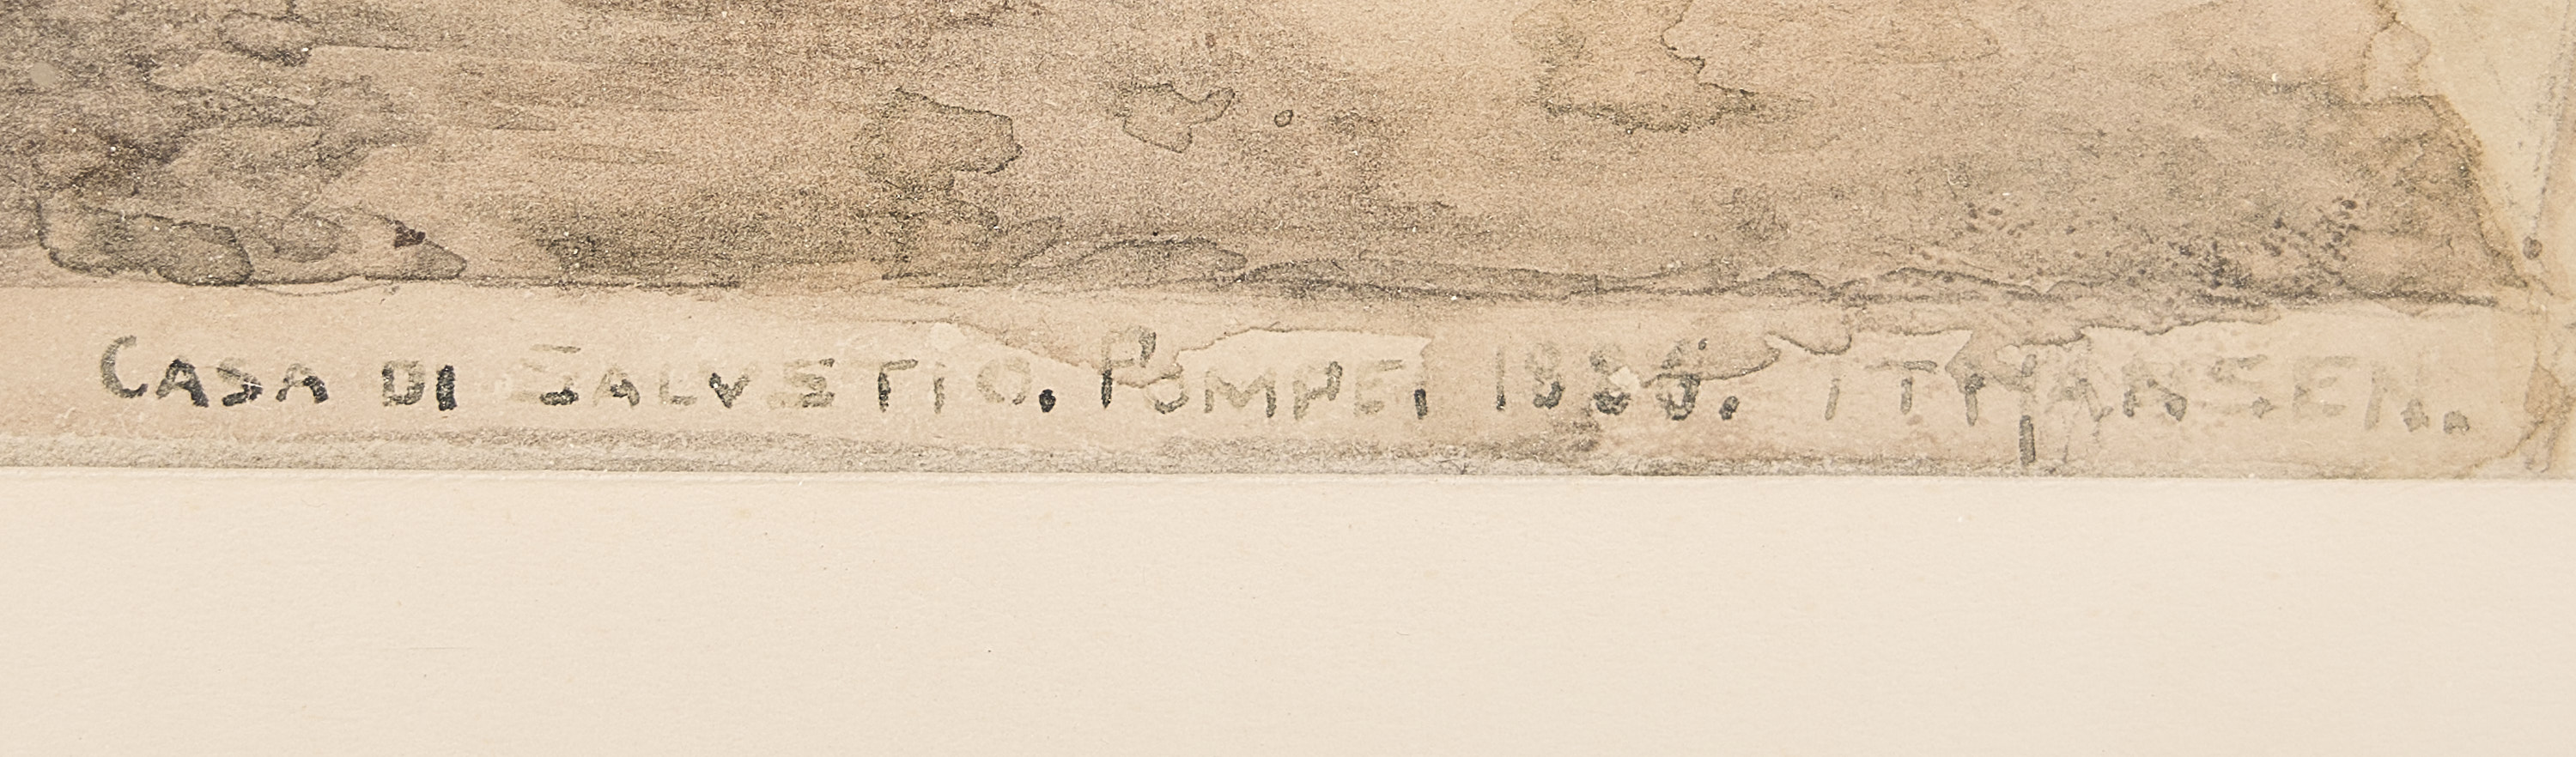 CASA DI SALVSTIO. POMPEI 1886. I T HANSEN.